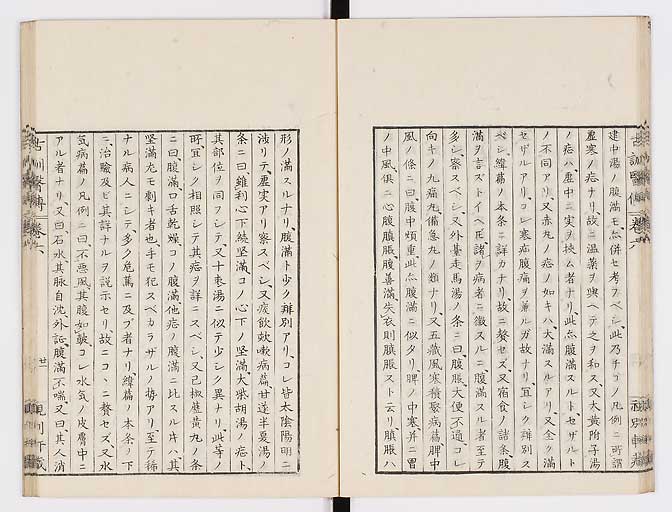 建中湯ノ腹滿モ亦併セ考フベシ、此乃チコノ凡例ニ所謂
虛寒ノ疝ナリ、故ニ温藥ヲ與ヘテ之ヲ和ス、又大黃附子湯
ノ疝ハ、虛中ニ實ヲ挾ム者ナリ、此亦腹滿スルト、セザルト
ノ不同アリ、又赤丸ノ疝ノ如キハ、大滿スルアリ、又全ク滿
セザルアリ、コレ寒疝腹痛ヲ兼ルガ故ナリ、宜シク辨別ス
ベシ、緯篇ノ本条ニ詳カナリ、故ニ贅セズ、又宿食ノ諸条、腹
滿ヲ言ズトイヘ𪜈、諸ヲ病者ニ徵スルニ、腹滿スル者至テ
多シ、察スベシ、又外臺走馬湯ノ条ニ曰、腹脹、大便不通、コレ
向キノ九痛丸、備急丸ノ類ナリ、又五藏風寒積聚病篇、脾中
風ノ條ニ曰、腹中煩重、此亦腹滿ニ似タリ、脾ノ中寒并ニ胃
ノ中風、俱ニ心腹脹、腹善滿、失衣則腹脹ストス云リ、腹脹ハ
形ノ滿スルナリ、腹滿ト少ク辨別アリ、コレ皆太陰陽明ニ
涉リテ、虛實アリ、察スベシ、又痰飲欬嗽病篇、甘遂半夏湯ノ
条ニ曰、雖利心下續堅滿、コノ心下ノ堅滿、大柴胡湯ノ疝ト、
其部位ヲ同フシテ、又十棗湯ニ似テ少シク異ナリ、此等ノ
所、宜シク相照シテ、其疝ヲ詳ニスベシ、又己椒藶黃丸ノ条
ニ曰、腹滿口舌乾燥、コノ腹滿、他疝ノ腹滿ニ比スルハ、其
堅滿尤モ劇キ者也、手モ犯スベカラザルノ勢アリ、至テ稀
ナル病人ニシテ、多ク危篤ニ及ブ者ナリ、緯篇ノ本条ノ下
ニ、治驗及ビ其詳ナルヲ說示セリ、故ニコヽニ贅セズ、又水
氣病篇ノ凡例ニ曰、不惡風、其腹如皷、コレ水氣ノ皮膚中ニ
アル者ナリ、又曰、石水其脉自沈、外証腹滿不喘、又曰、其人消